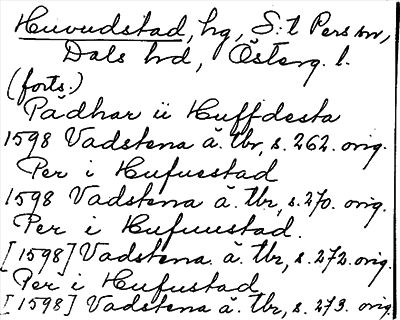 Huvudstad, hg, S:t Pers sn,
Dals hd, Österg. l.
(forts.)
Pädhar ü Huffdesta
1598 Vadstena ä. tbr, s. 262. orig.
Per i Hufuestad
1598 Vadstena ä. tbr, s. 270. orig.
Per i Hufuustad.
[1598] Vadstena ä. tbr, s. 272. orig.
Per i Hufustad
[1598] Vadstena ä. tbr, s. 273. orig.